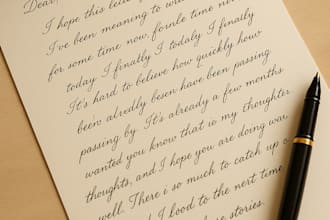 Dear,
I hope this lette
I've been meaning to wri
for some time now, fornle time ne
today I finatly I todaly I finally
It's hard to believe how quickly how
been alredlly besen have been passing
passing by. It's already a few months
wanted you know that io my thoughter
thoughts, and I hope you are doing wa
well. There i so much to catch up o
and I lood to the nert time
stories.